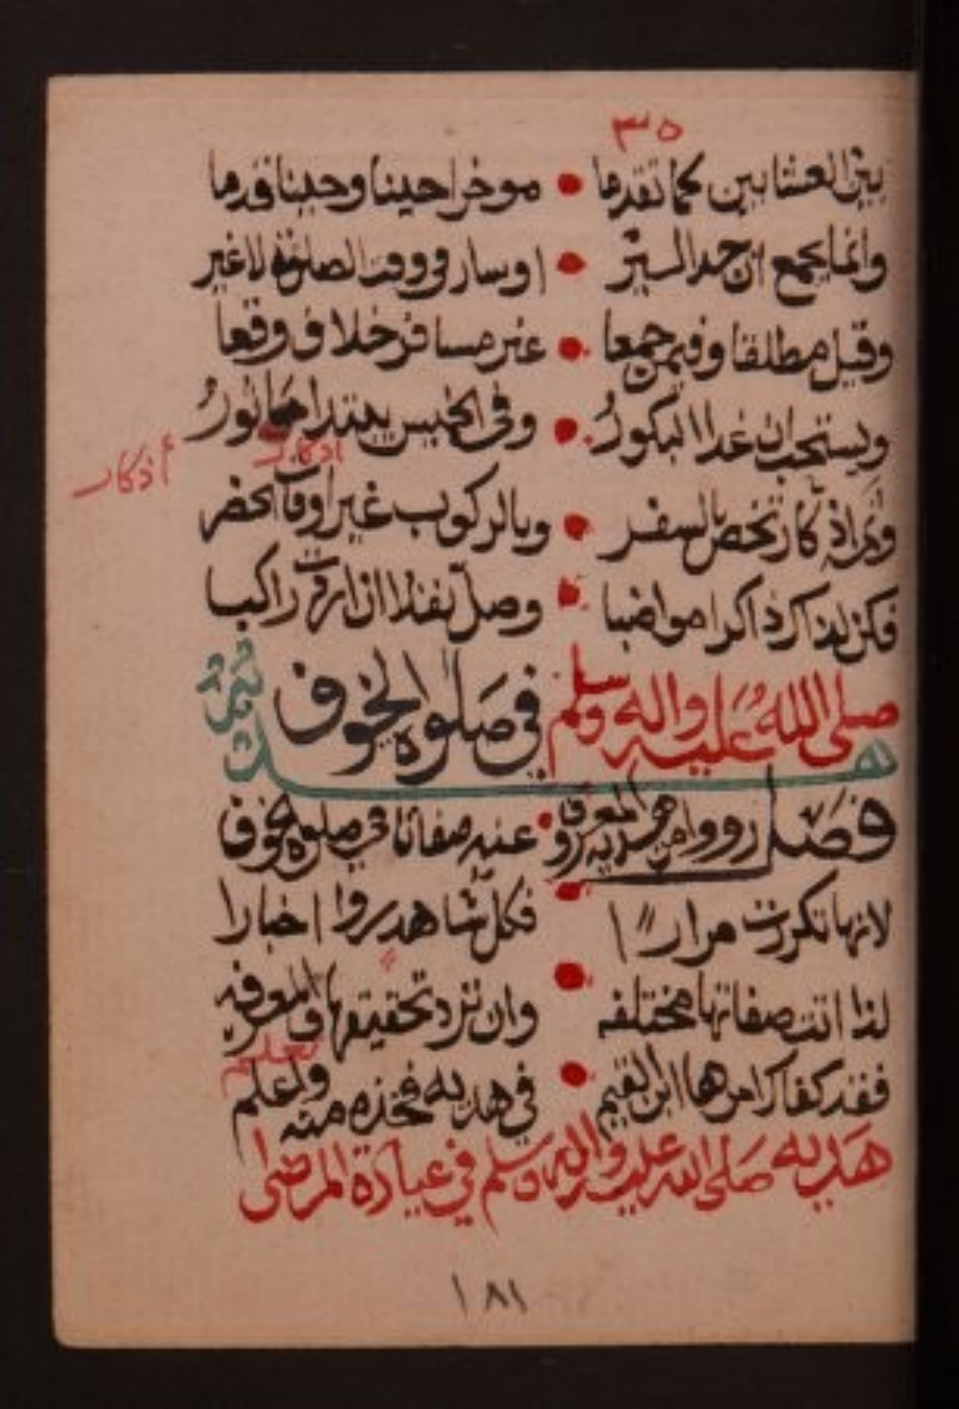 ٣٥
بين العشايين كما تقدما • موخرا حينا وحينا قدما
وانما يجمع ان جد السير • اوسار في وقت الصلوة لا غير
وقيل مطلقا وفيمن جمعا • عن مسافر خلاف وقعا
ويستحب ان غدا البكور • وفي الخميس يبتدا ماثور
أذكار
وثم اذكار تخص بالسفر • وبالركوب غير اوقات الحضر
فكن لها ذاكرا مواضبا • وصل نفلا ان اردت راكبا
صلى الله عليه واله وسلم في صلوة الخوف
فصل رووا من هديه المعروف • عنه صفاتا في صلوة الخوف
لانها تكررت مرارا • فكل شاهد روا اخبارا
لذا اتت صفاتها مختلفه • وان ترد تحقيقها والمعرفه
فقد كفاك امرها ابن القيم • في هديه فخذه منه واعلم
هديه صلى الله عليه واله وسلم في عيادة المرضى
١٨١